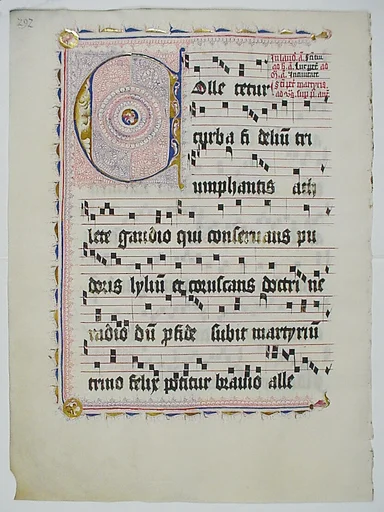 292
olle tetur
turba fi deliū tri
umphantis ath
lete gaudio qui conseruans pu
doris lyliū et coruscans doctri ne
radio dū p fide subit martyriū
trino felix potitur brauio alle